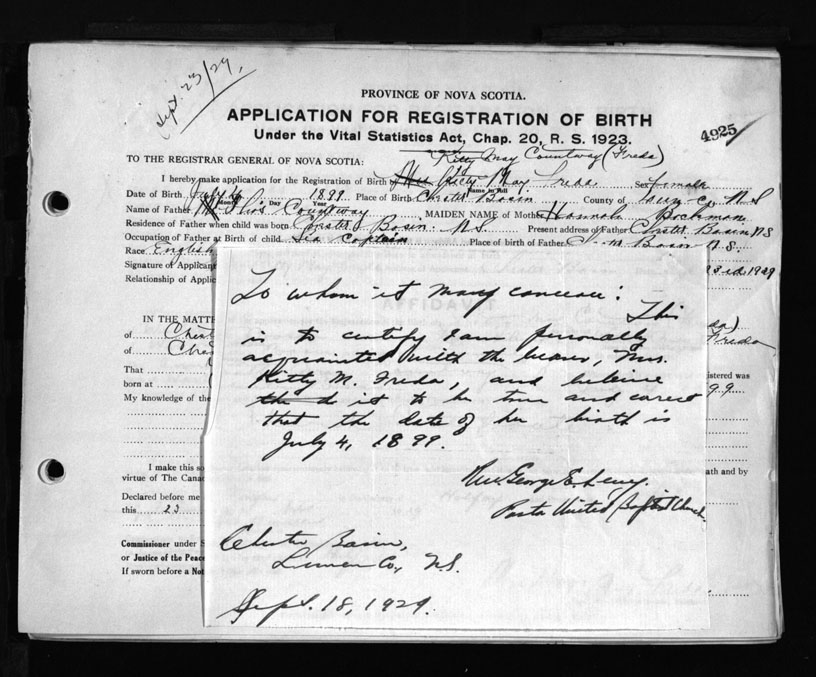 Sept. 23/29,
PROVINCE OF NOVA SCOTIA.
APPLICATION FOR REGISTRATION OF BIRTH
Under the Vital Statistics Act, Chap. 20, R. S. 1923.
4925
Kitty May Countway (Freda)
TO THE REGISTRAR GENERAL OF NOVA SCOTIA:
I hereby make application for the Registration of Birth of Kitty May Freda Sex female
Name in Full
Date of Birth July 4 1899 Place of Birth Chester Basin County of N S
Month Day Year
Name of Father Countway MAIDEN NAME of Mother Hannah
Residence of Father when child was born Chester Basin N.S. Present address of Father Chester Basin NS
Occupation of Father at Birth of child Sea Captain Place of birth of Father Basin N.S.
Race English
Signature of Applican 1929
Relationship of Applic
AFFIDAVIT
IN THE MATT
of Chest
of Ches Freda
That istered was
born at 99
My knowledge of the
I make this so ath and by
virtue of The Canad
Declared before me
this 23
Commissioner under S
or Justice of the Peace
If sworn before a Not
To whom it many concern: This
is to certify I am personally
acquainted with the bearer, Mrs.
Kitty M. Freda, and believe
the d it to be true and correct
that the date of her birth is
July 4, 1899.
Rev. George E. Levy.
Pastor United Baptist Church.
Chester Basin,
Lunen Co., N.S.
Sept. 18, 1929.